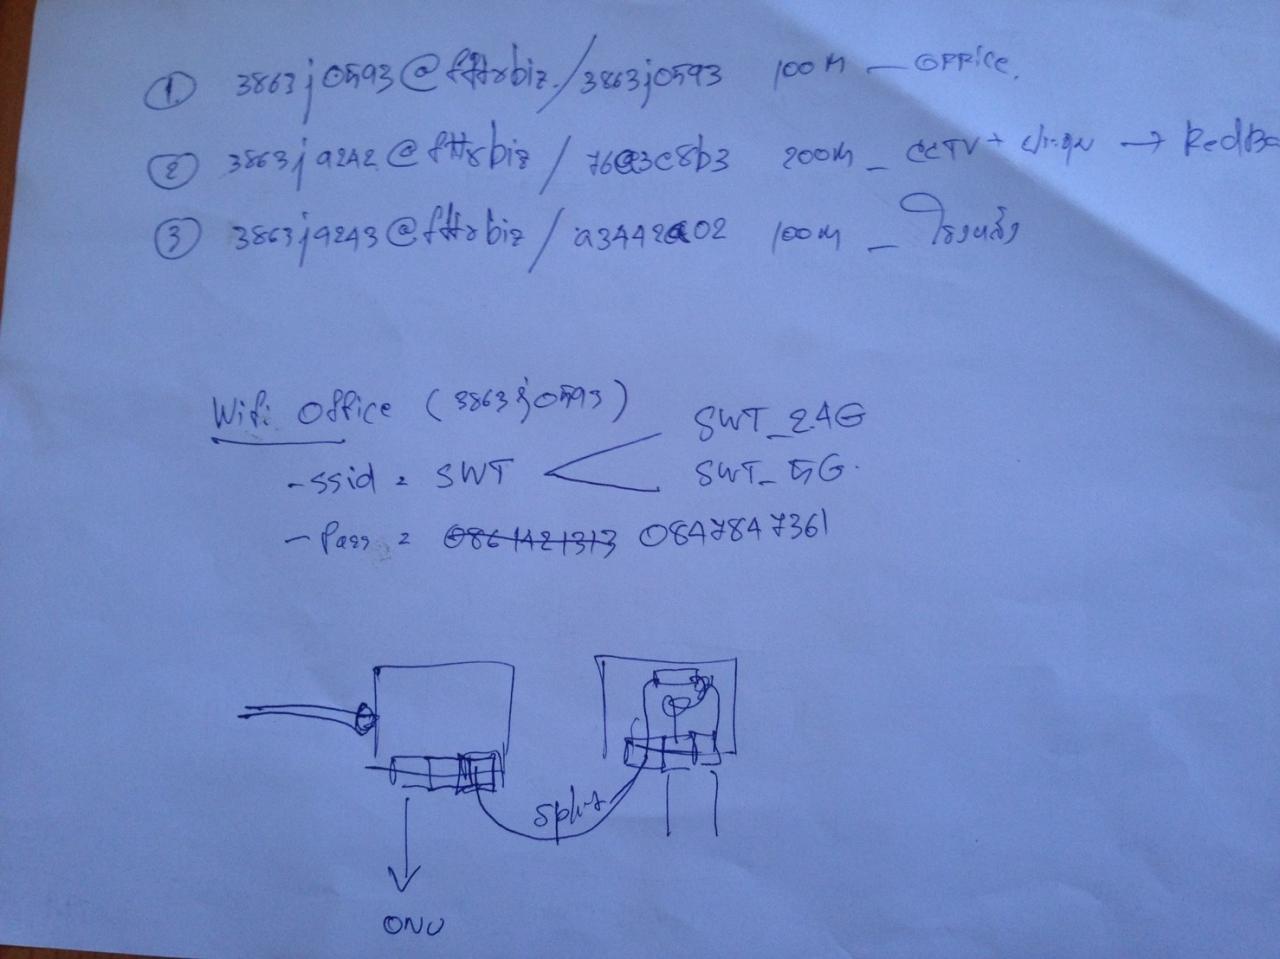 ① 3863j0593@fttxbiz/3863j0593 100M _ OFFice.
② 3863j9242@fttxbiz / 76a3c8b3 200M _ CCTV +
③ 3863j9243@fttxbiz / a3442a02 100M _ โรงหลัง
Wifi Office (3863j0593)
- ssid = SWT
SWT_2.4G
SWT_5G.
- Pass = 0861421313 0847847361
ONU